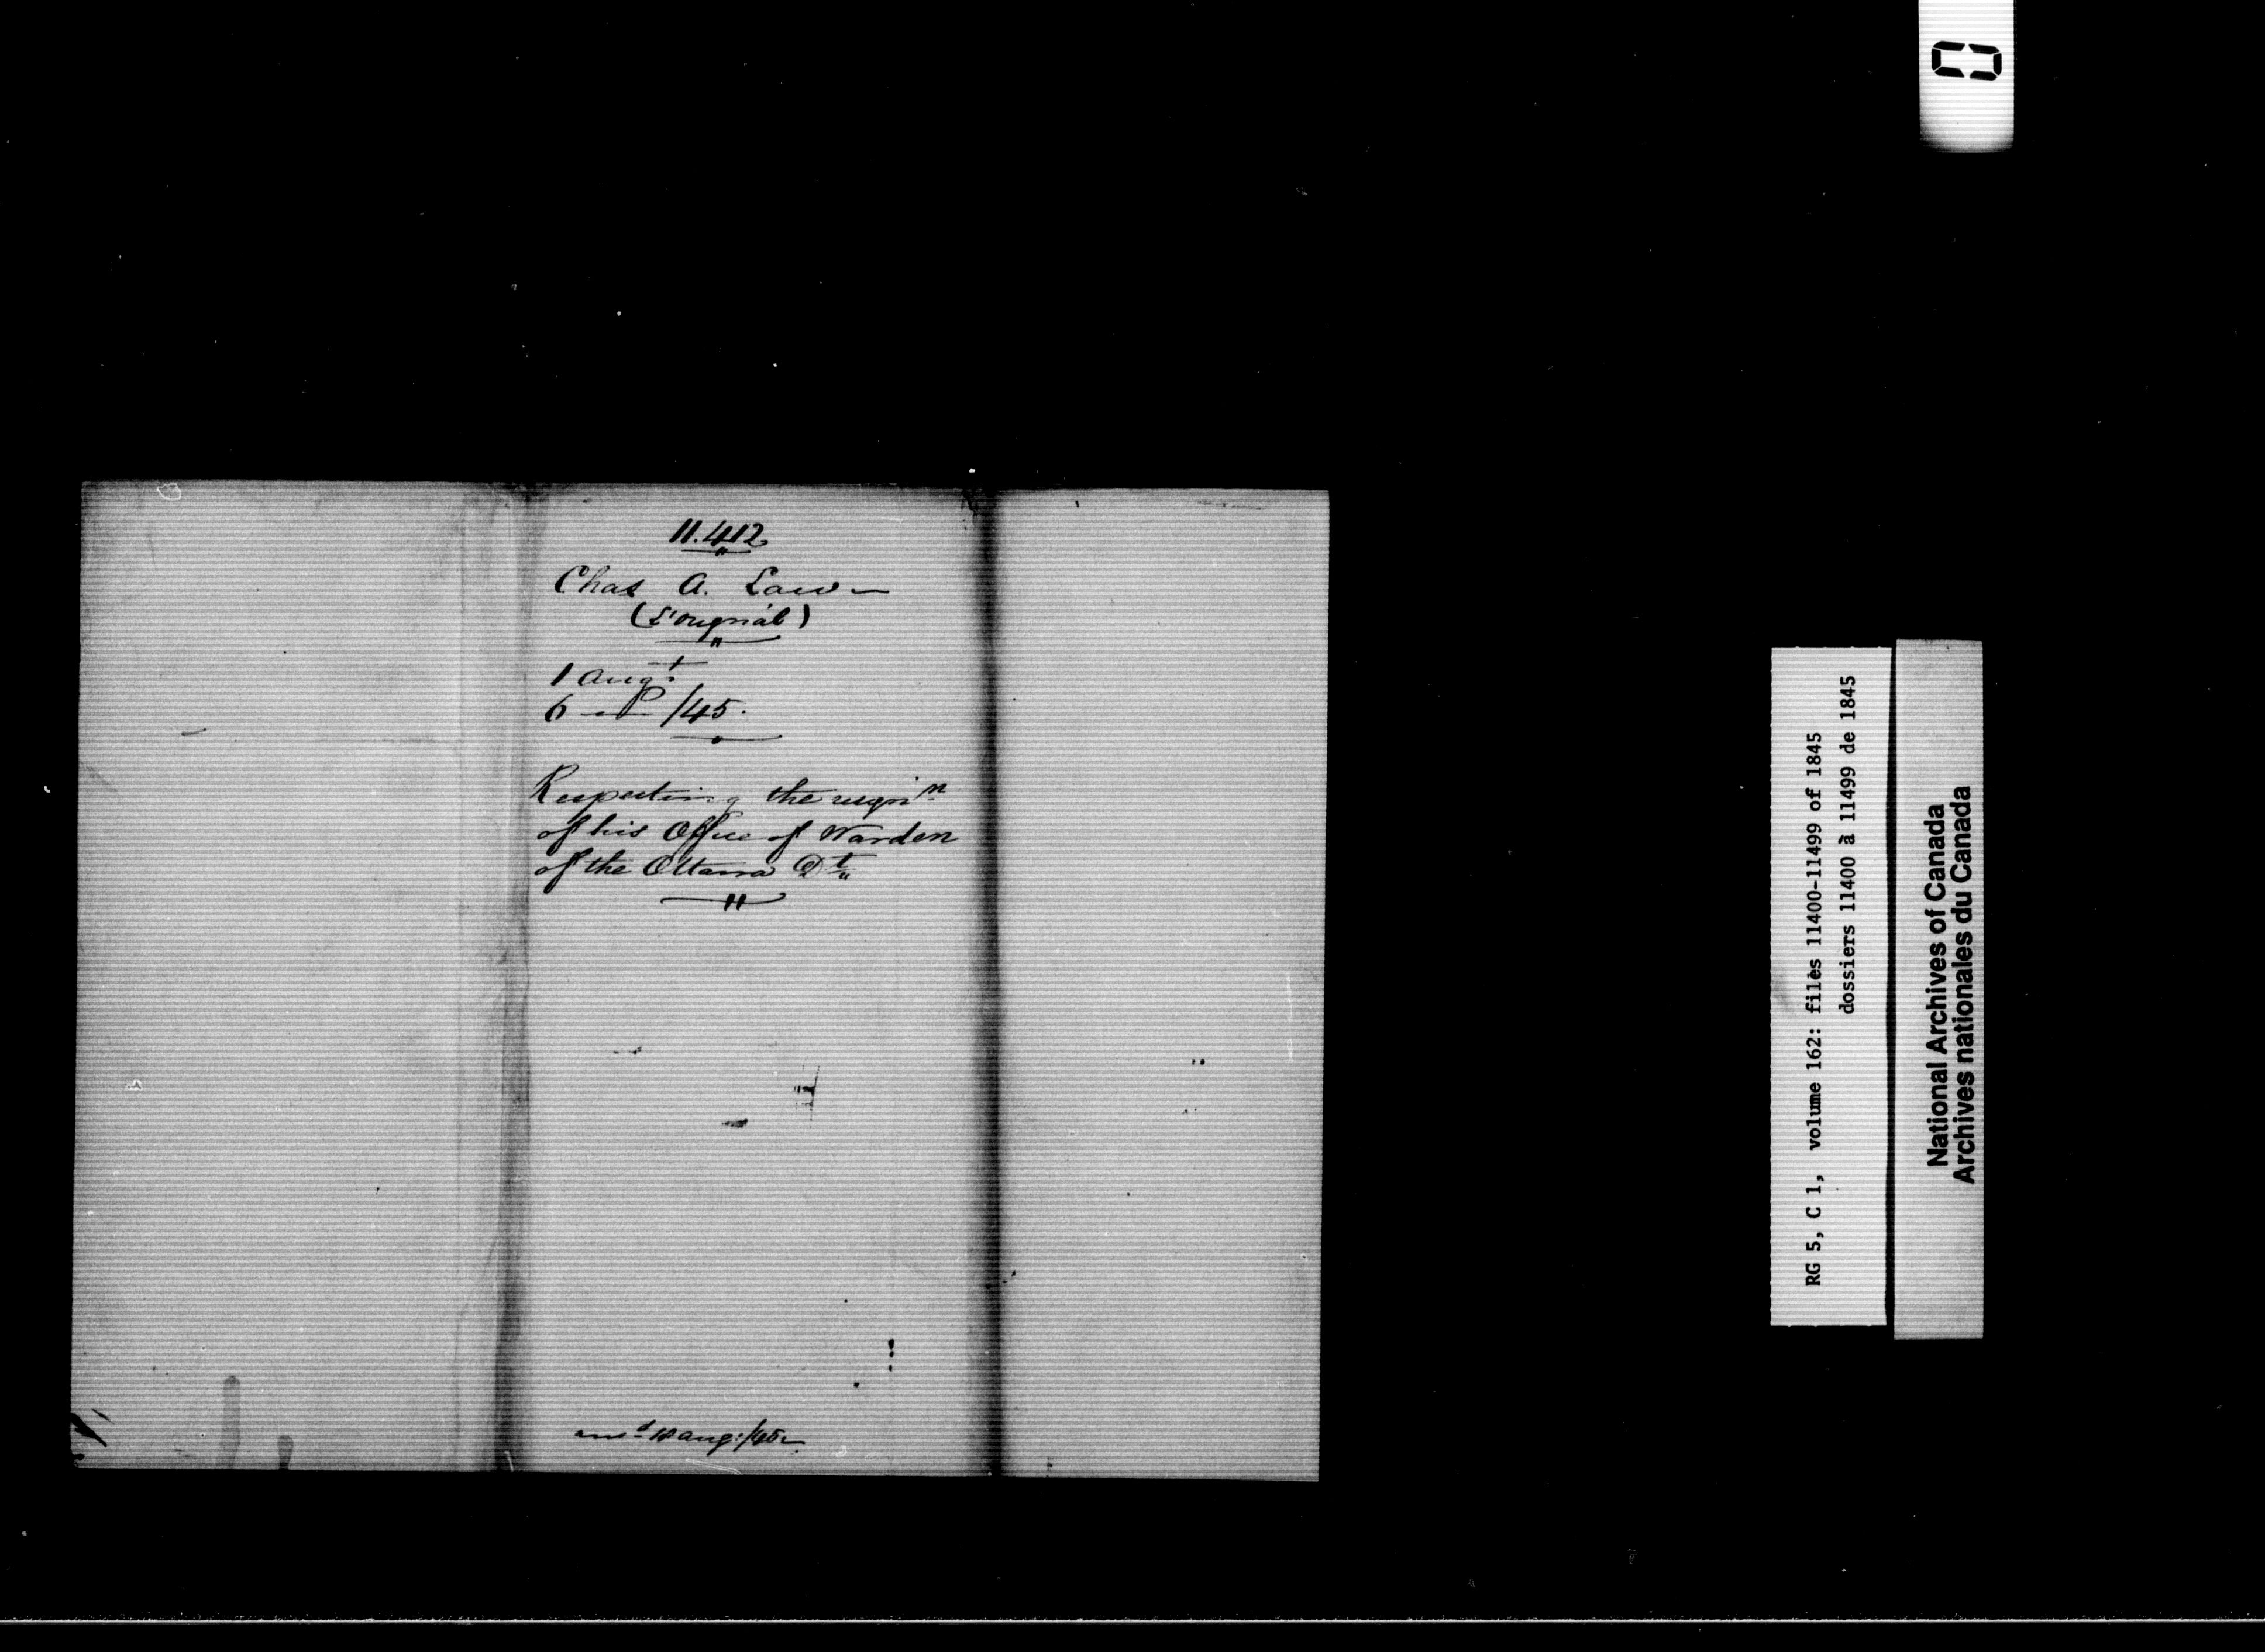 11.412
Chas A. Law
(L'orignal)
1 Augt
6 do /45.
Respecting the resignn
of his Office of Warden
of the Ottawa Dt
ansd 18 Aug: /45
RG 5, C 1, volume 162: files 11400-11499 of 1845
dossiers 11400 à 11499 de 1845
National Archives of Canada
Archives nationales du Canada